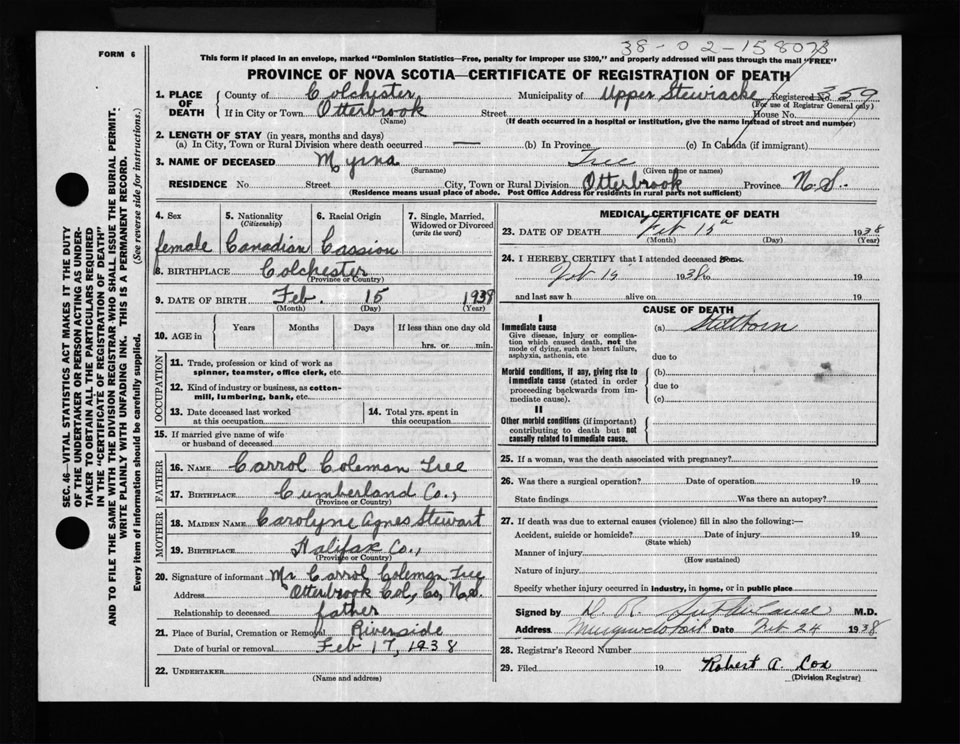 38-02-158073
FORM 6
This form if placed in an envelope, marked "Dominion Statistics—Free, penalty for improper use $300," and properly addressed will pass through the mail "FREE"
PROVINCE OF NOVA SCOTIA—CERTIFICATE OF REGISTRATION OF DEATH
1. PLACE OF DEATH County of Colchester Municipality of Upper Stewiacke Registered No. 359
(For use of Registrar General only)
If in City or Town Otterbrook Street House No.
(Name) (If death occurred in a hospital or institution, give the name instead of street and number)
2. LENGTH OF STAY (in years, months and days)
(a) In City, Town or Rural Division where death occurred — (b) In Province (c) In Canada (if immigrant)
3. NAME OF DECEASED Myrna Tree
(Surname) (Given name or names)
RESIDENCE No. Street City, Town or Rural Division Otterbrook Province N.S.
(Residence means usual place of abode. Post Office Address for residents in rural parts not sufficient)
4. Sex 5. Nationality (Citizenship) 6. Racial Origin 7. Single, Married, Widowed or Divorced (write the word)
female Canadian
8. BIRTHPLACE Colchester
(Province or Country)
9. DATE OF BIRTH Feb. 15 1938
(Month) (Day) (Year)
10. AGE in Years Months Days If less than one day old
hrs. or min.
OCCUPATION
11. Trade, profession or kind of work as spinner, teamster, office clerk, etc.
12. Kind of industry or business, as cotton-mill, lumbering, bank, etc.
13. Date deceased last worked at this occupation 14. Total yrs. spent in this occupation
15. If married give name of wife or husband of deceased
FATHER
16. NAME Carrol Coleman Tree
17. BIRTHPLACE Cumberland Co.,
(Province or Country)
MOTHER
18. MAIDEN NAME Carolyne Agnes Stewart
19. BIRTHPLACE Halifax Co.,
(Province or Country)
20. Signature of informant Mr Carrol Coleman Tree
Address Otterbrook Col. Co, N.S.
Relationship to deceased father
21. Place of Burial, Cremation or Removal Riverside
Date of burial or removal Feb 17, 1938
22. UNDERTAKER
(Name and address)
MEDICAL CERTIFICATE OF DEATH
23. DATE OF DEATH Feb 15 1938
(Month) (Day) (Year)
24. I HEREBY CERTIFY that I attended deceased from
Feb 15 1938 to 19
and last saw h alive on 19
CAUSE OF DEATH
I
Immediate cause
Give disease, injury or complication which caused death, not the mode of dying, such as heart failure, asphyxia, asthenia, etc
(a) Stillborn
due to
Morbid conditions, if any, giving rise to immediate cause (stated in order proceeding backwards from immediate cause).
(b)
due to
(c)
II
Other morbid conditions (if important) contributing to death but not causally related to immediate cause.
25. If a woman, was the death associated with pregnancy?
26. Was there a surgical operation? Date of operation 19
State findings Was there an autopsy?
27. If death was due to external causes (violence) fill in also the following:—
Accident, suicide or homicide? Date of injury 19
(State which)
Manner of injury
(How sustained)
Nature of injury
Specify whether injury occurred in industry, in home, or in public place
Signed by D. R. Sutherland M.D.
Address Date Feb 24 1938
28. Registrar's Record Number
29. Filed 19 Robert A. Cox
(Division Registrar)
SEC. 46—VITAL STATISTICS ACT MAKES IT THE DUTY
OF THE UNDERTAKER OR PERSON ACTING AS UNDER-
TAKER TO OBTAIN ALL THE PARTICULARS REQUIRED
IN THE "CERTIFICATE OF REGISTRATION OF DEATH"
AND TO FILE THE SAME WITH THE DIVISION REGISTRAR WHO SHALL ISSUE THE BURIAL PERMIT.
WRITE PLAINLY WITH UNFADING INK. THIS IS A PERMANENT RECORD.
Every item of information should be carefully supplied. (See reverse side for instructions.)